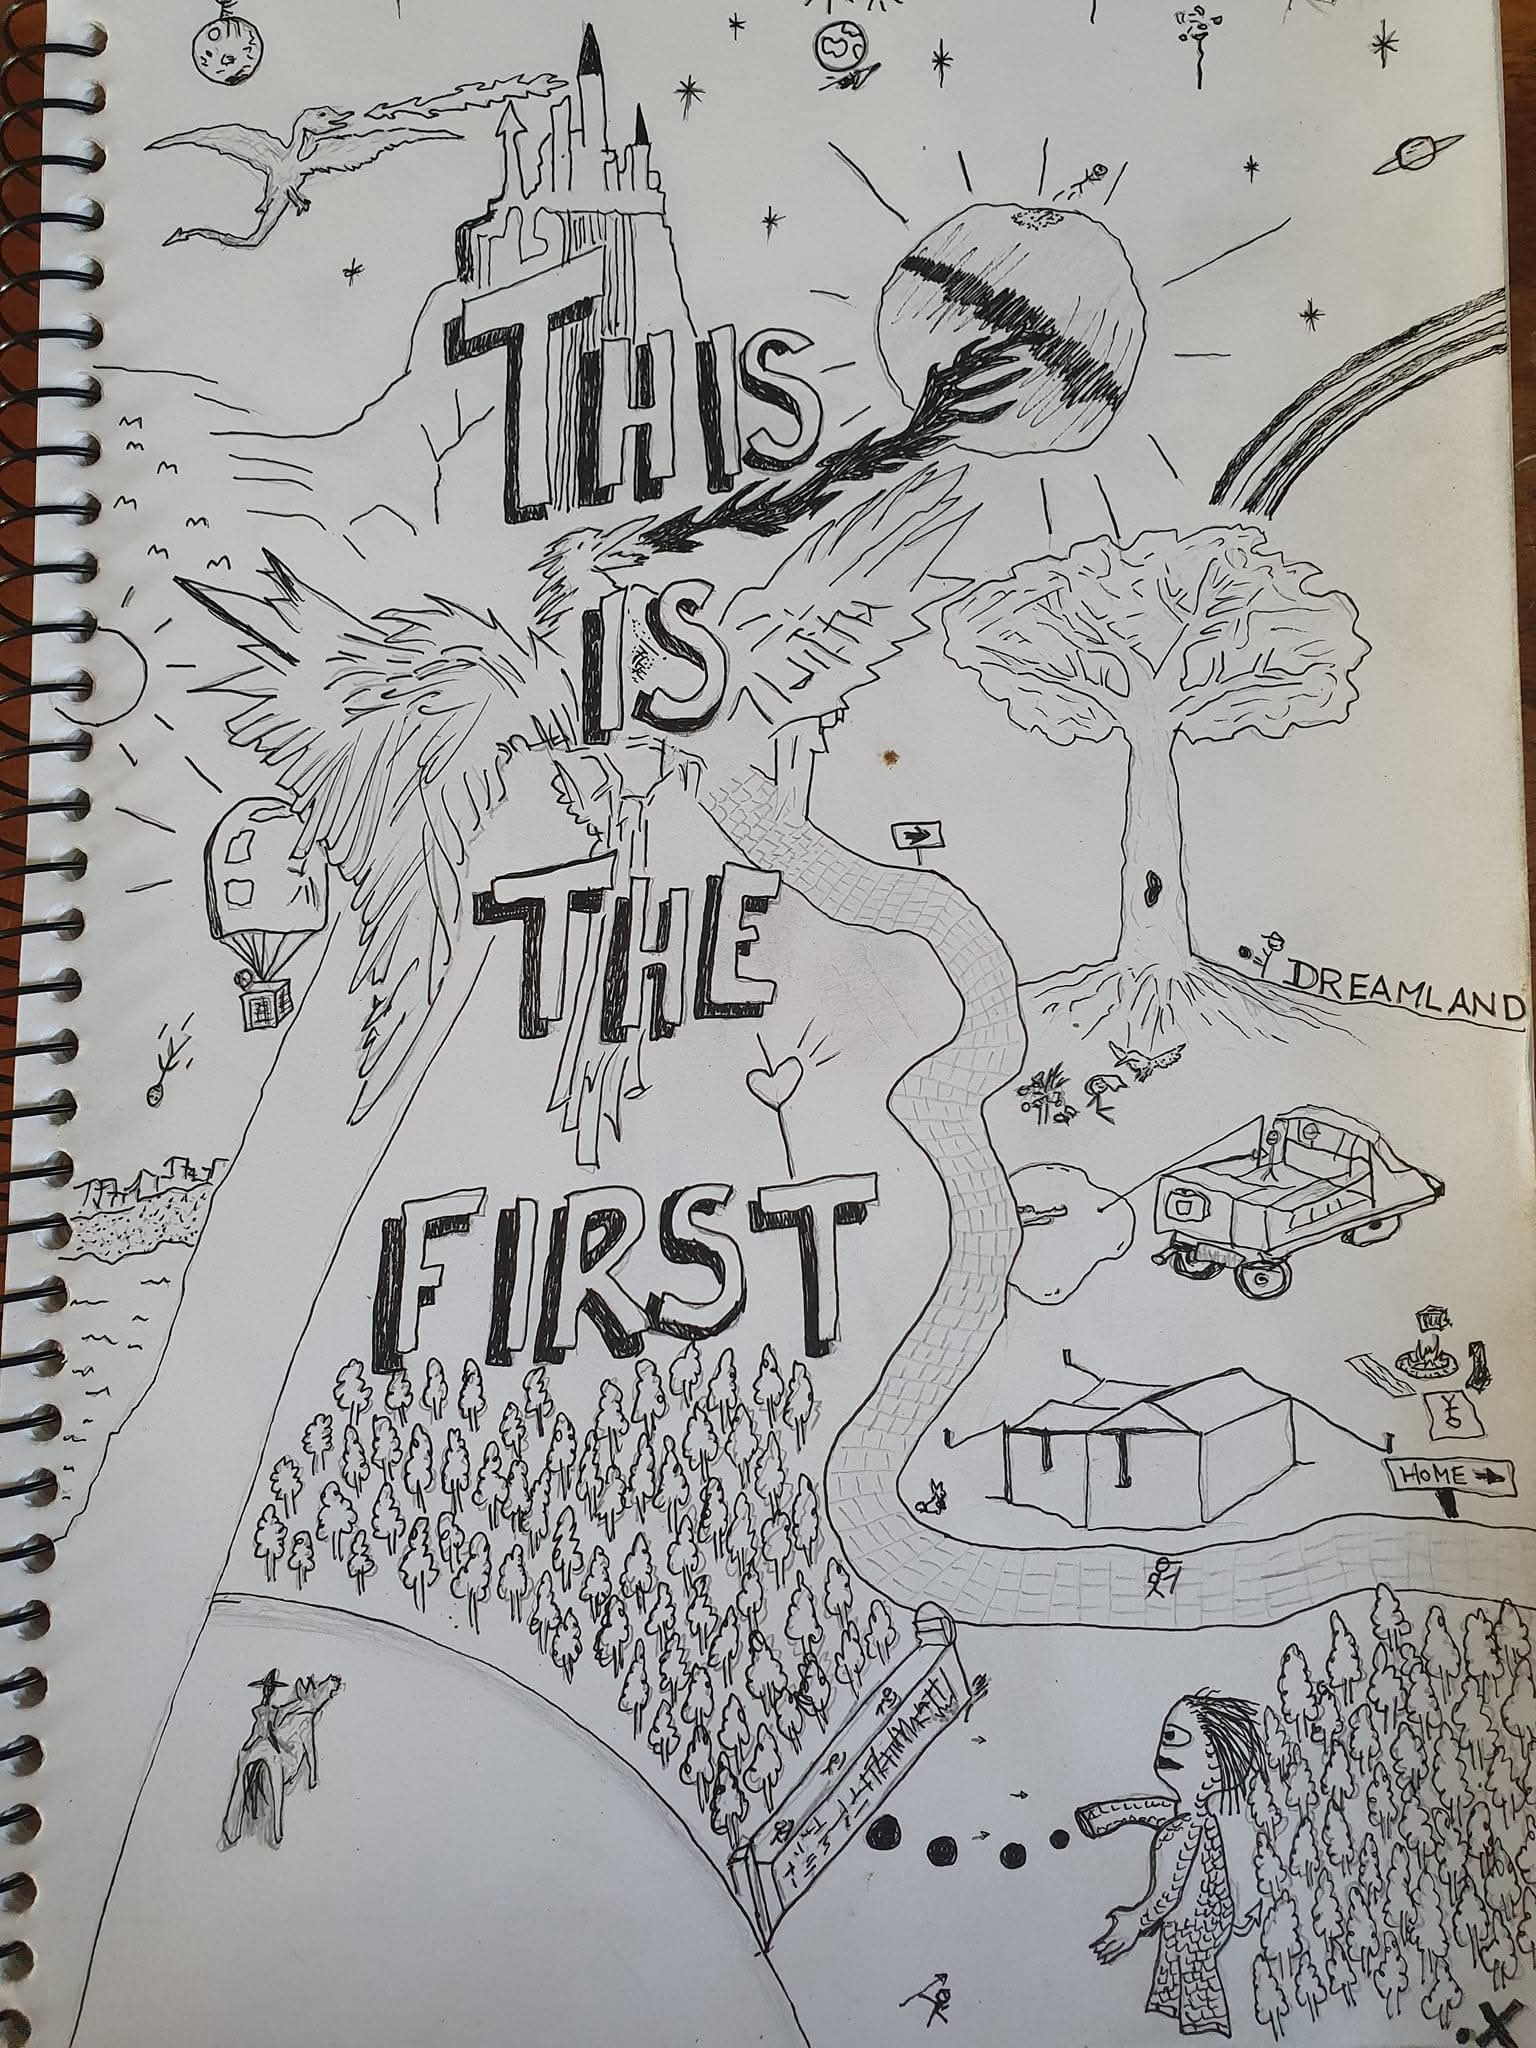 THIS
IS
THE
FIRST
DREAMLAND
HOME
.X